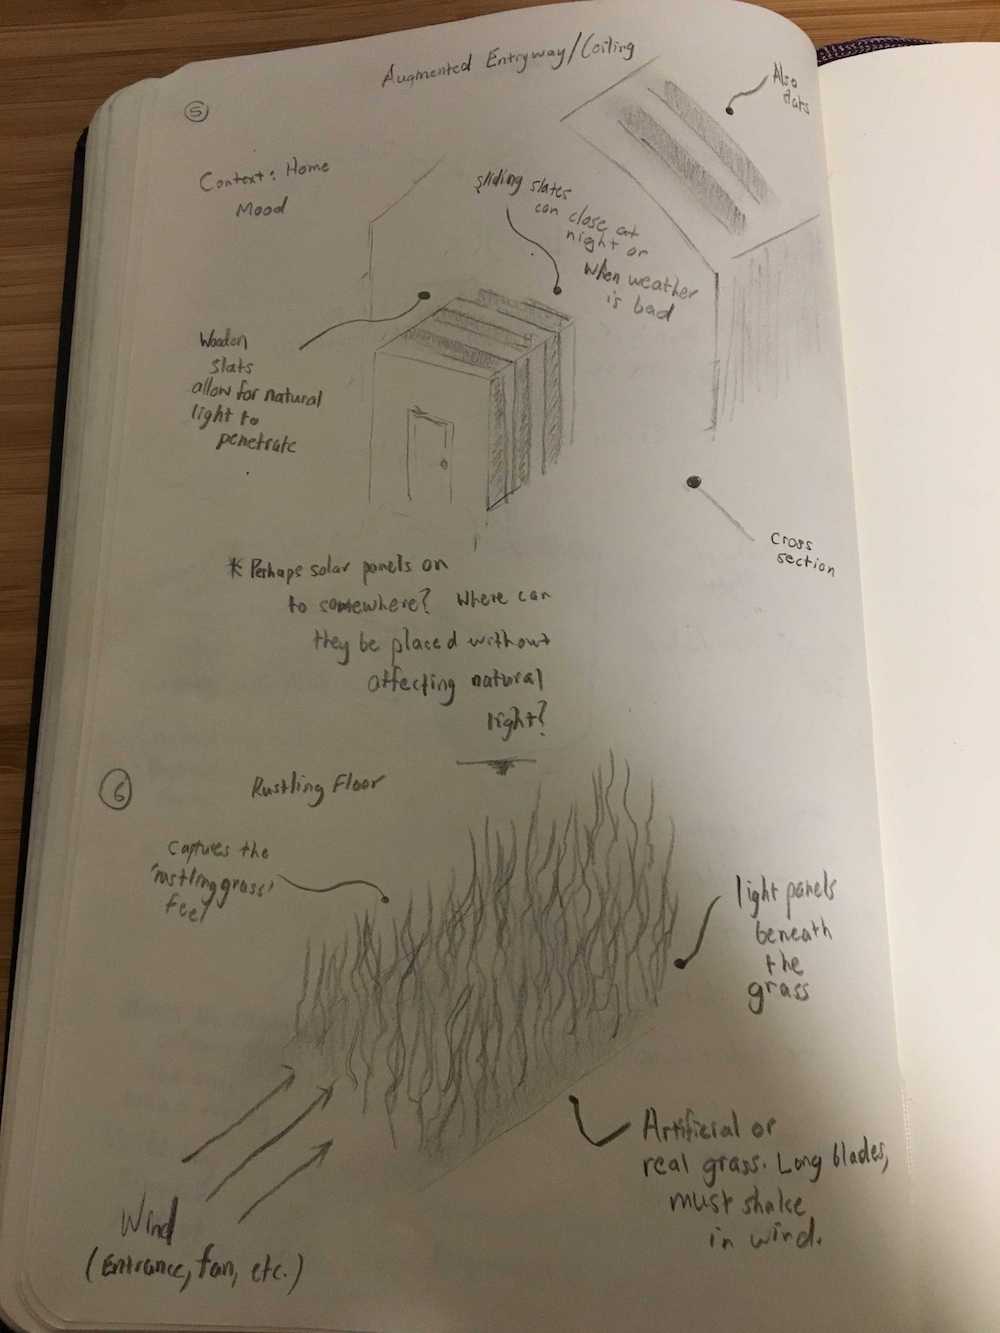 5
Augmented Entryway/Ceiling
Also
slats
Context: Home
Mood
sliding slates
can close at
night or
when weather
is bad
Wooden
slats
allow for natural
light to
penetrate
cross
section
* Perhaps solar panels on
to somewhere? Where can
they be placed without
affecting natural
light?
6
Rustling Floor
Captures the
'rustling grass'
feel
light panels
beneath
the
grass
Artificial or
real grass. Long blades,
must shake
in wind.
Wind
(Entrance, fan, etc.)